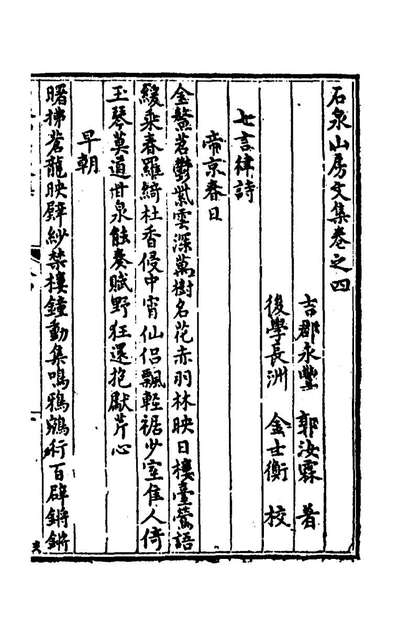 石泉山房文集卷之四
吉郡永豐 郭汝霖 著
後學長洲 金士衡 校
七言律詩
帝京春日
金鰲苕鬱紫雲深萬樹名花赤羽林映日樓臺鶯語
緩乘春羅綺杜香侵中宵仙侶飄輕裾少室佳人倚
玉琴莫道甘泉能奏賦野狂還抱獻芹心
早朝
曙拂蒼龍映壁紗禁樓鐘動集鳴鴉鵷行百辟鏘鏘